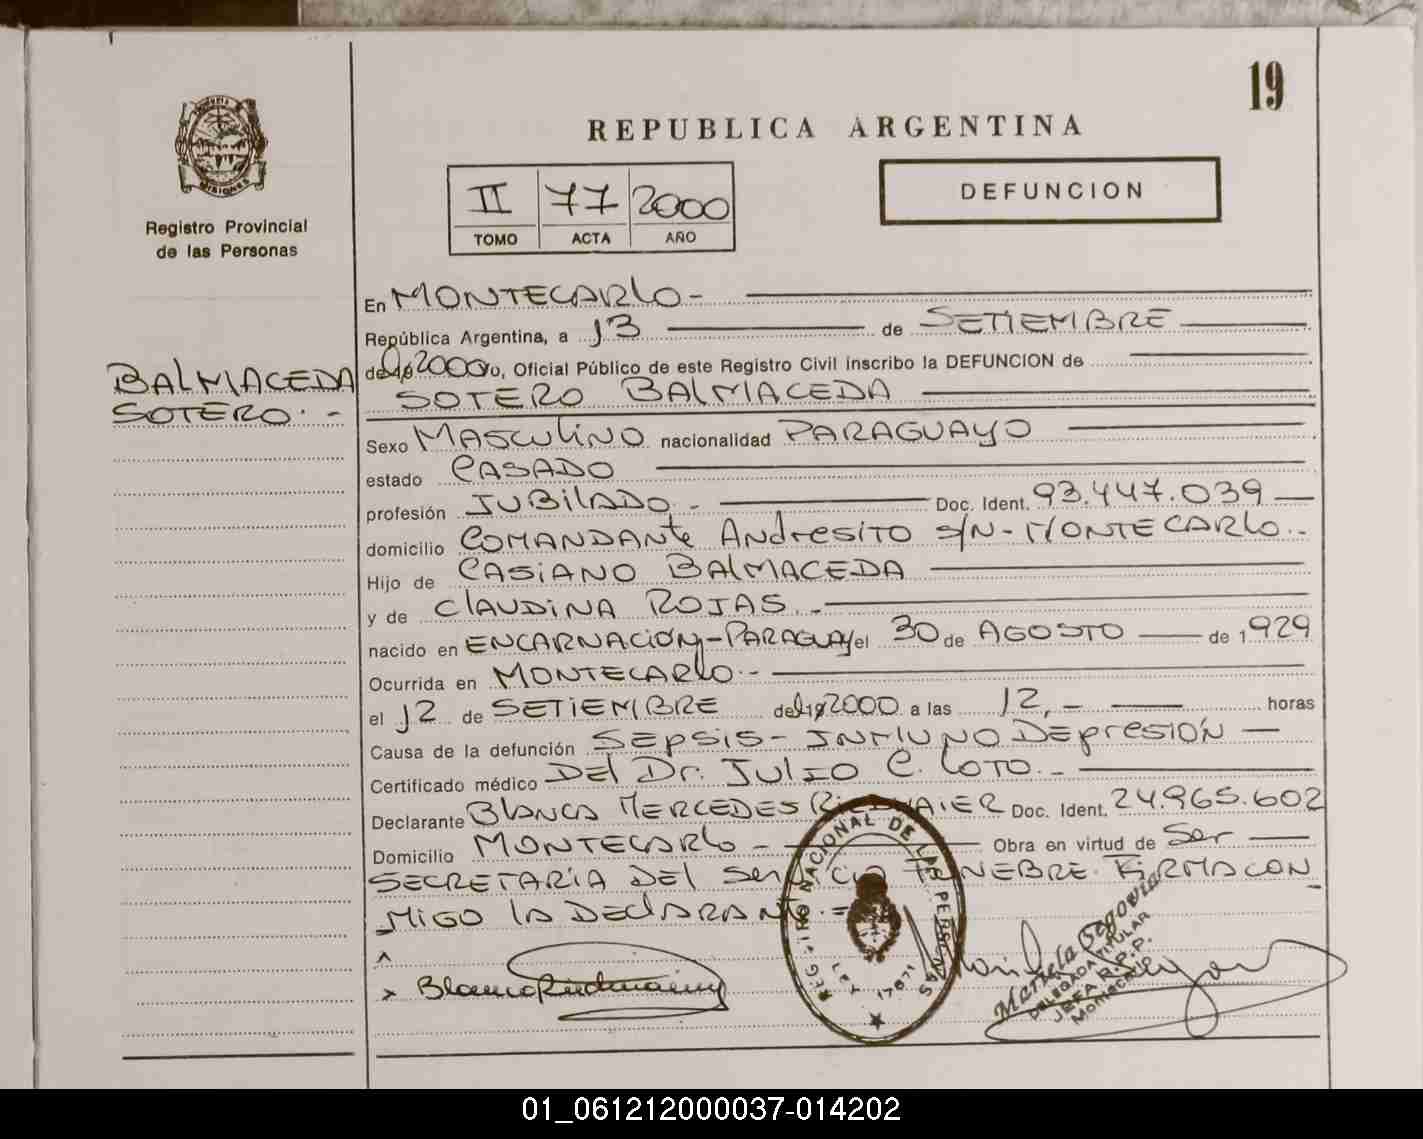 19
REPUBLICA ARGENTINA
MISIONES
Registro Provincial
de las Personas
II 77 2000
TOMO ACTA AÑO
DEFUNCION
BALMACEDA
SOTERO.-
En MONTECARLO-
República Argentina, a 13 de SETIEMBRE
del 2000, Oficial Público de este Registro Civil inscribo la DEFUNCION de
SOTERO BALMACEDA
Sexo MASCULINO nacionalidad PARAGUAYO
estado CASADO
profesión JUBILADO.- Doc. Ident. 93.447.039
domicilio COMANDANTE ANDRESITO S/N-MONTECARLO.-
Hijo de CASIANO BALMACEDA
y de CLAUDINA ROJAS.-
nacido en ENCARNACIÓN-PARAGUAY el 30 de AGOSTO de 1929
Ocurrida en MONTECARLO.-
el 12 de SETIEMBRE del 2000 a las 12,- horas
Causa de la defunción SEPSIS-INMUNO DEPRESIÓN
Certificado médico DEL Dr. JULIO C. LOTO.-
Declarante BLANCA MERCEDES Doc. Ident. 24.965.602
Domicilio MONTECARLO- Obra en virtud de Ser
SECRETARIA DEL SERVICIO FUNEBRE. FIRMA CON
MIGO LA DECLARANTE.=
REGISTRO NACIONAL DE LAS PERSONAS
LEY 17671
Blanca
Mariela Segovia
DELEGADA TITULAR
R.P.P.
Montecarlo
01_061212000037-014202